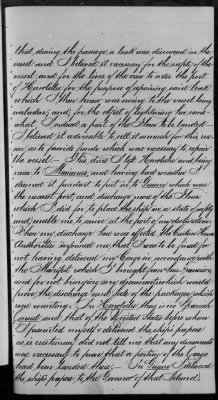 that, during the passage a leak was discovered in the
vessel and I believed it necessary for the safety of the
vessel, and for the lives of the crew to enter the port
of Honolulu for the purpose of repairing said leak
which I then knew was owing to the vessel being
overladen; and for the object of lightening her some
what, I ordered a part of the Flour to be landed.
I believed it advisable to sell as much for this rea
son as to provide funds which were necessary to repair
the vessel. This done I left Honolulu and being
near to Marianas and having bad weather I
deemed it prudent to put in to Guam which was
the nearest port, and discharge more of the Flour
which I did so to place the ship in a state of safety
and enable me to arrive at the port of my destination.
When my discharge here was effected the Custom House
Authorities informed me that I was to be fined for
not having delivered my Cargo in accordance with
the Manifest which I brought from San Francisco
and for not bringing any document which would
prove the discharge and sale of the packages which
were wanting. In Honolulu there is no Spanish
Consul and that of the United States before whom
I presented myself & delivered the ship's papers
as is customary did not tell me that any document
was necessary to prove that a portion of the Cargo
had been landed there. In Guam I delivered
the ship's papers to the Governor of that Island,